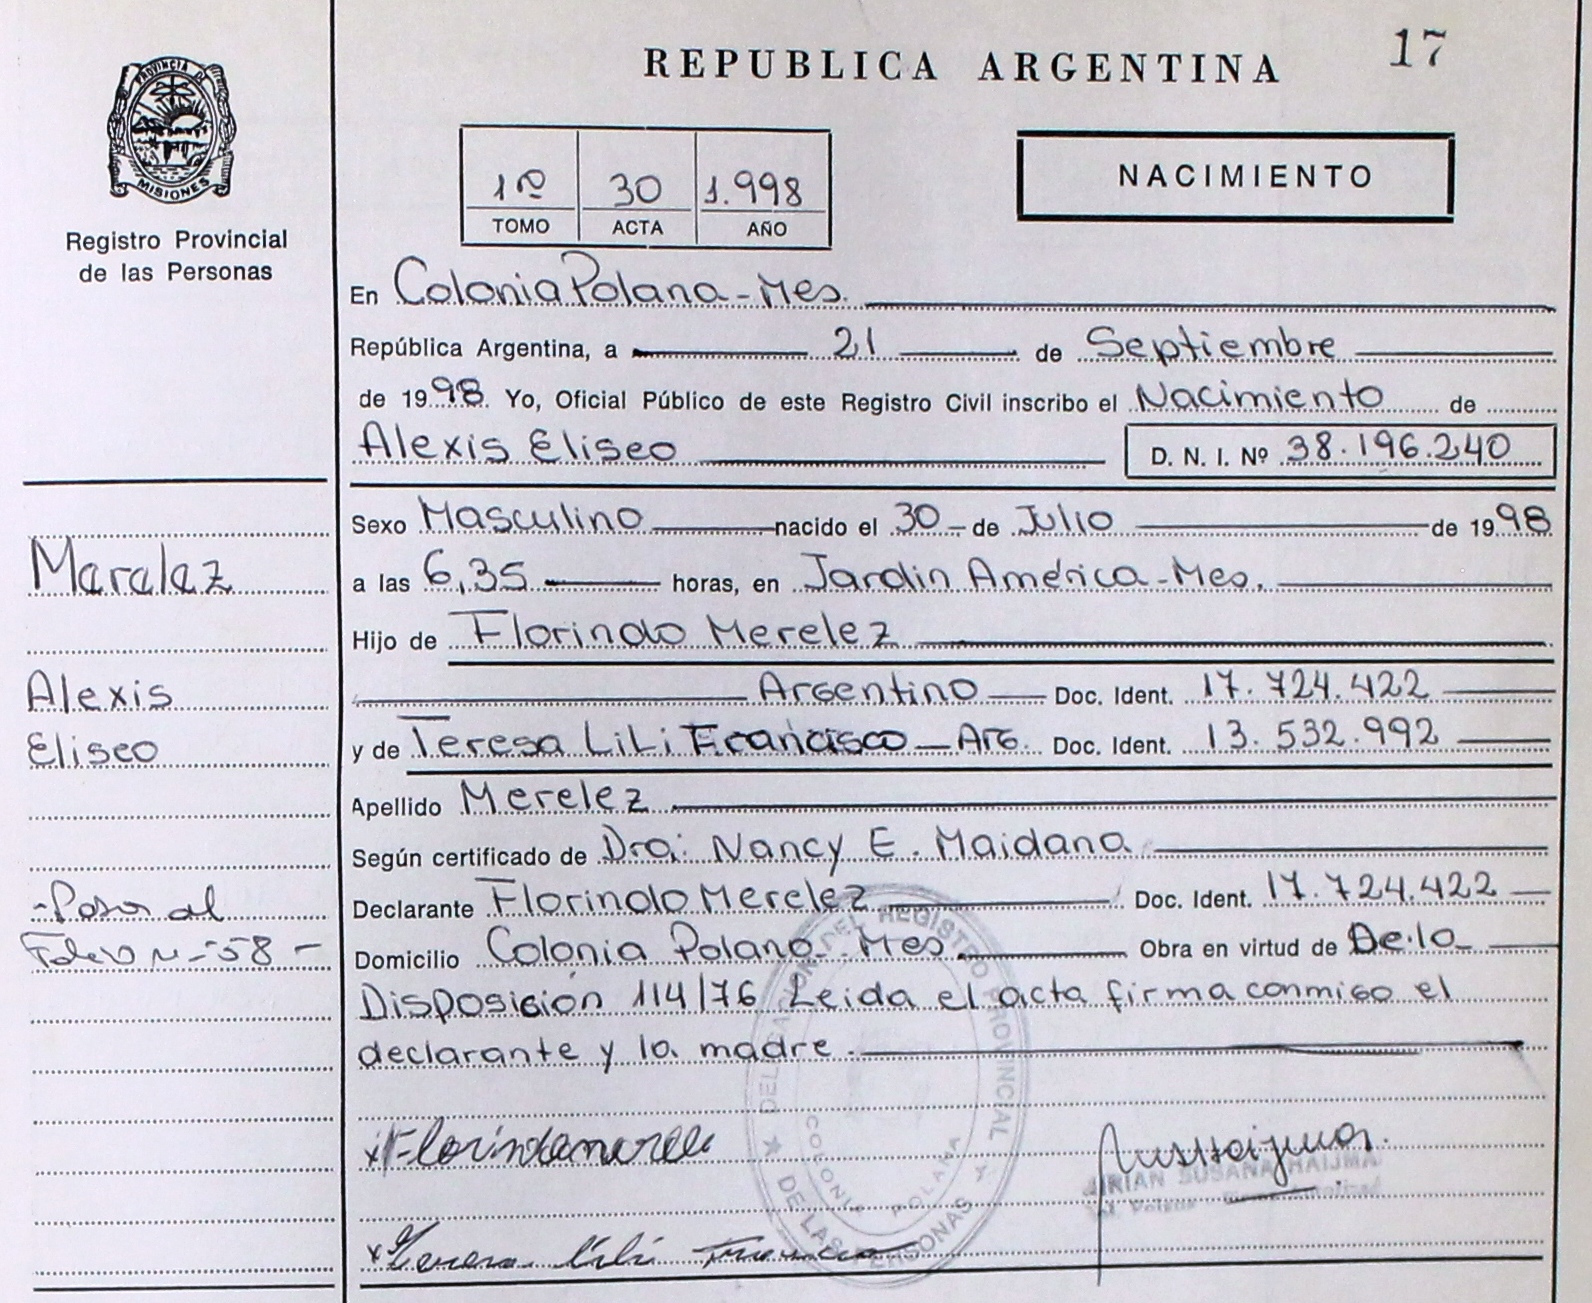 REPUBLICA ARGENTINA
17
PROVINCIA DE
MISIONES
Registro Provincial
de las Personas
1º 30 1.998
TOMO ACTA AÑO
NACIMIENTO
En Colonia Polana - Mes.
República Argentina, a 21 de Septiembre
de 1998. Yo, Oficial Público de este Registro Civil inscribo el Nacimiento de
Alexis Eliseo D. N. I. Nº 38.196.240
Sexo Masculino nacido el 30 de Julio de 1998
a las 6,35 horas, en Jardin América - Mes.
Hijo de Florindo Merelez
Argentino Doc. Ident. 17.724.422
y de Teresa LiLi Francisco - Arg. Doc. Ident. 13.532.992
Apellido Merelez
Según certificado de Dra: Nancy E. Maidana
Declarante Florindo Merelez Doc. Ident. 17.724.422
Domicilio Colonia Polana - Mes. Obra en virtud de De.la
Disposición 114/76 Leida el acta firma conmigo el
declarante y la madre.
Maralez
Alexis
Eliseo
- Pasa al
Folio Nº 58 -
DELEGACION DEL REGISTRO PROVINCIAL
DE LAS PERSONAS
COLONIA POLANA
x Teresa Lili Francisco
MIRIAN SUSANA HAIJMA